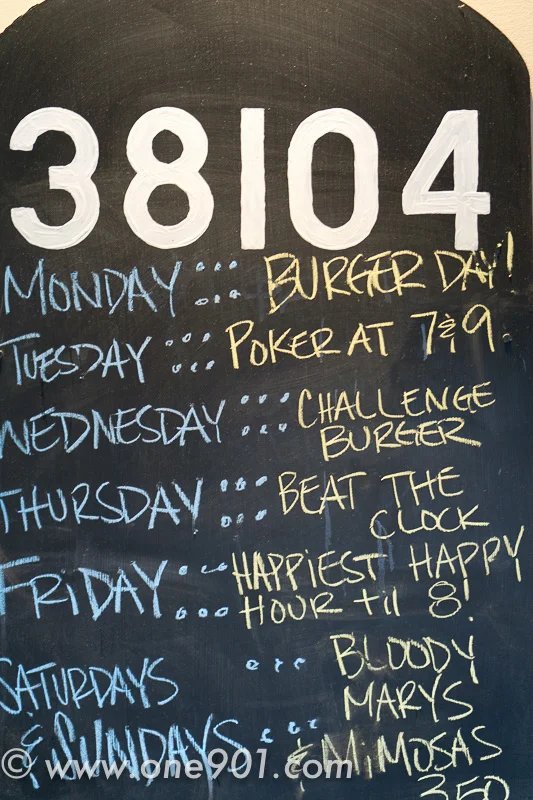 38104
MONDAY BURGER DAY!
TUESDAY POKER AT 7 & 9.
WEDNESDAY CHALLENGE
BURGER
THURSDAY BEAT THE
CLOCK
FRIDAY HAPPIEST HAPPY
HOUR til 8!
SATURDAYS BLOODY
MARYS
& SUNDAYS & MIMOSAS
350
© www.one901.com